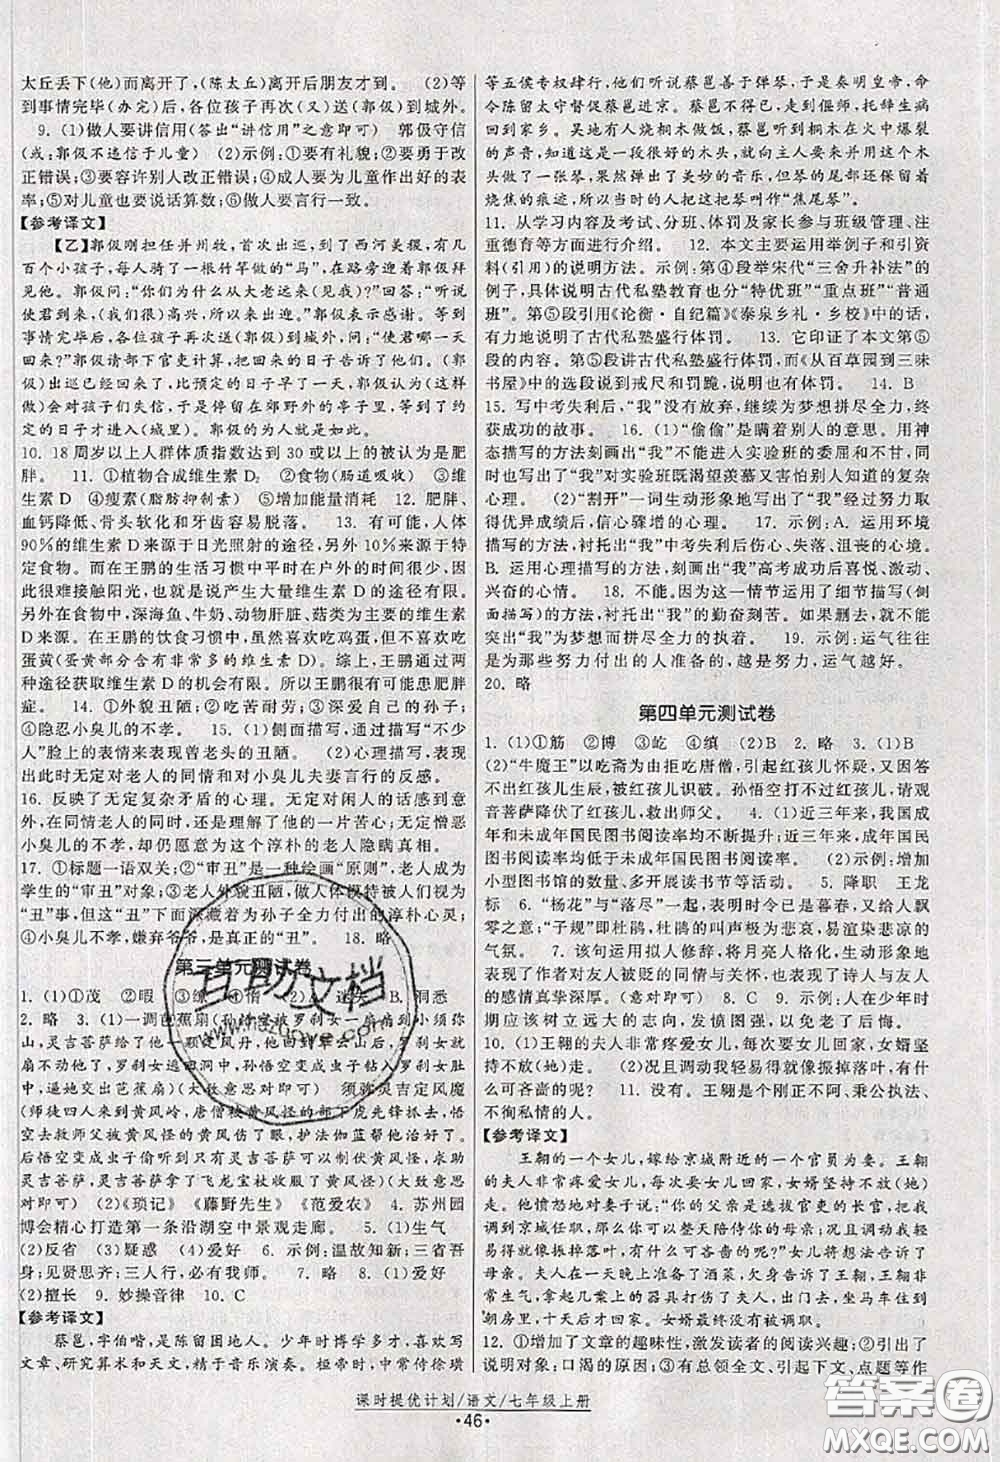 太丘丢下(他)而离开了,(陈太丘)离开后朋友才到。 (2)等
到事情完毕(办完)后,各位孩子再次(又)送(郭伋)到城外。
9. (1)做人要讲信用(答出“讲信用”之意即可) 郭伋守信
(或:郭伋不违信于儿童) (2)示例:①要有礼貌;②要勇于改
正错误;③要容许别人改正错误;④成人要为儿童作出好的表
率;⑤对儿童也要说话算数;⑥要言行一致。
【参考译文】
【乙】郭伋刚担任并州牧,首次出巡,到了西河美稷,有几
百个小孩子,每人骑了一根竹竿做的“马”,在路旁迎着郭伋拜
见他。郭伋问:“你们为什么从大老远来(见我)?”回答:“听说
使君到来,(我们)很高兴,所以来出迎。”郭伋表示感谢。等到
事情完毕后,各位孩子再次送(郭伋)到城外,问:“使君哪一天
回来?”郭伋请部下官吏计算,把回来的日子告诉了他们。(郭
伋)出巡后回来,比预定的日子提前了一天。郭伋认为(这样
做)会对孩子们失信,于是停留在郊野外的亭子里,等到了约
定的日子才进入(城里)。郭伋的为人就是如此。
10. 18周岁以上人群体质指数达到30或以上的被认为是肥
胖。 11. ①植物合成维生素D₂ ②食物(肠道吸收) ③维
生素D ④瘦素(脂肪抑制素) ⑤增加能量消耗 12. 肥胖、
血钙降低、骨头软化和牙齿容易脱落。 13. 有可能,人体
90%的维生素D来源于日光照射的途径,另外10%来源于特
定食物。而在王鹏的生活习惯中平时在户外的时间很少,因
此很难接触阳光,也就是说产生大量维生素D的可能性很小。
另外在食物中,深海鱼、牛奶、动物肝脏、菇类为主要的维生素
D来源。在王鹏的饮食习惯中,虽然喜欢吃鸡蛋,但是不喜欢吃
蛋黄(蛋黄部分含有非常多的维生素D)。综上,王鹏通过两种
途径获取维生素D的机会有限。所以王鹏有可能患此肥胖
症。 14. ①外貌丑陋;②吃苦耐劳;③深爱自己的孙子;
④隐忍小臭儿的不孝。 15. (1)侧面描写,通过描写“不少
人”脸上的表情来表现曾老头的丑陋。 (2)心理描写,写出
了无定对老人的同情和对小臭儿夫妻言行的反感。
16. 反映了无定复杂矛盾的心理。无定对闲人的话感到意
外,在同情老人的同时,还理解了他的一片苦心;无定憎恶
小臭儿的不孝,却仍愿意为这个淳朴的老人隐瞒真相。
17. ①标题一语双关;②“审丑”是一种绘画“原则”,老人成为
学生的“审丑”对象;③老人外貌丑陋,做人体模特被人们视为
“丑”事,但这“丑”下面深藏着为孙子全力付出的淳朴心灵;
④小臭儿不孝,嫌弃爷爷,是真正的“丑”。 18. 略
第三单元测试卷
1. (1)①茂 ②暇 ③缭 ④惰 (2)A. 迷失 B. 洞悉
2. 略 3. (1)一调芭蕉扇(孙悟空被罗刹女一扇扇到小须弥
山,灵吉菩萨给了他一粒定风丹,他回来后再战罗刹女,罗
刹女扇不动他。孙悟空变成虫子飞到了罗刹女肚子里,
逼迫她交出芭蕉扇)(大致意思对即可) 须弥灵吉定风魔
(师徒四人来到黄风岭,唐僧被黄风怪的部下虎先锋抓去,悟
空去救师父被黄风怪的黄风伤了眼,护法伽蓝帮他治好了。
后悟空变成虫子偷听到只有灵吉菩萨可以制伏黄风怪,便去
请灵吉菩萨,灵吉菩萨拿了飞龙宝杖收服了黄风怪)(大致意
思对即可) (2)《琐记》 《藤野先生》 《范爱农》 4. 苏州园
博会精心打造第一条沿湖空中景观走廊。 5. (1)生气
(2)反省 (3)疑惑 (4)爱好 6. 示例:温故知新;三省吾
身;见贤思齐;三人行,必有我师。 7. 略 8. (1)爱好
(2)擅长 9. 妙操音律 10. C
【参考译文】
蔡邕,字伯喈,是陈留圉地人。少年时博学多才。喜欢写
文章、研究算术和天文,精于音乐演奏。桓帝时,中常侍徐璜
等五侯专权肆行,他们听说蔡邕善于弹琴,于是奏明皇帝,命
令陈留太守督促蔡邕进京。蔡邕不得已,走到偃师,托辞生病
回到家乡。吴地有人烧桐木做饭,蔡邕听到桐木在火中爆裂
的声音,知道这是一段很好的木头,就向主人要过来,用这段
木头做了一张琴,果然弹出了美妙的音乐,但琴的尾部还有
烧焦的痕迹,所以当时的人把这把琴叫做“焦尾琴”。
11. 从学习内容及考试、分班、体罚及家长参与班级管理、注
重德育等方面进行介绍。 12. 本文主要运用举例子和引资
料(引用)的说明方法。示例:第④段举宋代“三舍升补法”的
例子,具体说明古代私塾教育也分“特优班”“重点班”“普通
班”。第⑤段引用《论衡·自纪篇》《泰泉乡礼·乡校》的例子,
有力地说明了古代私塾盛行体罚。 13. 它印证了本文第⑤
段的内容。第⑤段讲古代私塾盛行体罚,而《从百草园到三味
书屋》中的选段说到戒尺和罚跪,说明也有体罚。 14. B
15. 写中考失利后,“我”没有放弃,继续为梦想拼尽全力,最
终获成功的故事。 16. (1)“偷偷”是瞒着别人的意思。用神
态描写的方法刻画出“我”不能进入实验班的委屈和不甘,同
时也写出了“我”对实验班既渴望羡慕又害怕别人知道的复杂
心理。 (2)“割开”一词生动形象地写出了“我”通过努力
取得优异成绩后,信心骤增的心理。 17. 示例:A. 运用环境
描写的方法,衬托出“我”中考失利后伤心、失落、沮丧的心境。
B. 运用心理描写的方法,刻画出“我”高考成功后喜悦、激动、
兴奋的心情。 18. 不能。因为这一段运用了细节描写
(侧面描写)的方法,衬托出“我”的勤奋刻苦。如果删去,就不能
突出“我”为梦想而拼尽全力的执着。 19. 示例:运气往往
是为梦想努力付出的人准备的,拼尽全力时,运气越好。
20. 略
第四单元测试卷
1. (1)①筋 ②博 ③屹 ④缜 (2)B 2. 略 3. (1)B
(2)“牛魔王”以吃斋为由来拒吃唐僧,引起红孩儿怀疑,又因
答不出红孩儿生辰,被红孩儿识破。孙悟空找到观音菩萨,请
观音菩萨降伏了红孩儿,救出师父。 4. (1)近三年来,我国成
年和未成年国民图书阅读率均不断提升;近三年来,成年国民
图书阅读率均低于未成年国民图书阅读率。 (2)示例:增加
小型图书馆的数量、多开展读书节等活动。 5. 降职 王龙
标 6. “杨花”与“落尽”一起,写出了时令已是暮春,以景
抒情;“子规”即杜鹃,杜鹃的叫声极为悲哀,易渲染悲凉的
气氛。 7. 该句运用拟人修辞,将月亮人格化,生动形象地
表现了诗人与友人的感情真挚深厚。(意对即可) 8. C 9. 示例:人在少年时
期应该树立远大的志向,发愤图强,以免老了后悔。
10. (1)王翱的夫人非常疼爱女儿,每次迎女儿回家,女婿坚
持不放(她)走。 (2)况且调动我易得就像振掉落叶,有什
么可吝啬的呢? 11. 没有。王翱是个刚正不阿、秉公执法、
不徇私情的人。
【参考译文】
王翱的一个女儿,嫁给京城附近的一个官员为妻。王翱
的夫人非常疼爱女儿,每次要女儿回家,女婿坚持不放(她)
走。(他)愤怒地对妻子说:“你的父亲是掌管选拔官员的,把我
调到京城任职,那么你可以整天陪侍你的母亲;况且调动我
轻易得就像振掉落叶,有什么可吝啬的呢?”女儿将想法告诉了
母亲。夫人在一天晚上准备了酒菜,跪着告诉了王翱,王翱
非常生气,拿起几案上的器具打伤了夫人,出门去,坐车住到
朝房里,十天后才回家。女婿最终没有被调职。
12. ①增加了文章的趣味性,激发读者的阅读兴趣;②引出了
说明对象:口渴的原因;③有总领全文、交代下文、点题等作
课时提优计划/语文/七年级上册
·46·
互助文档
www.hzduowei.com
答案卷
MXQE.COM